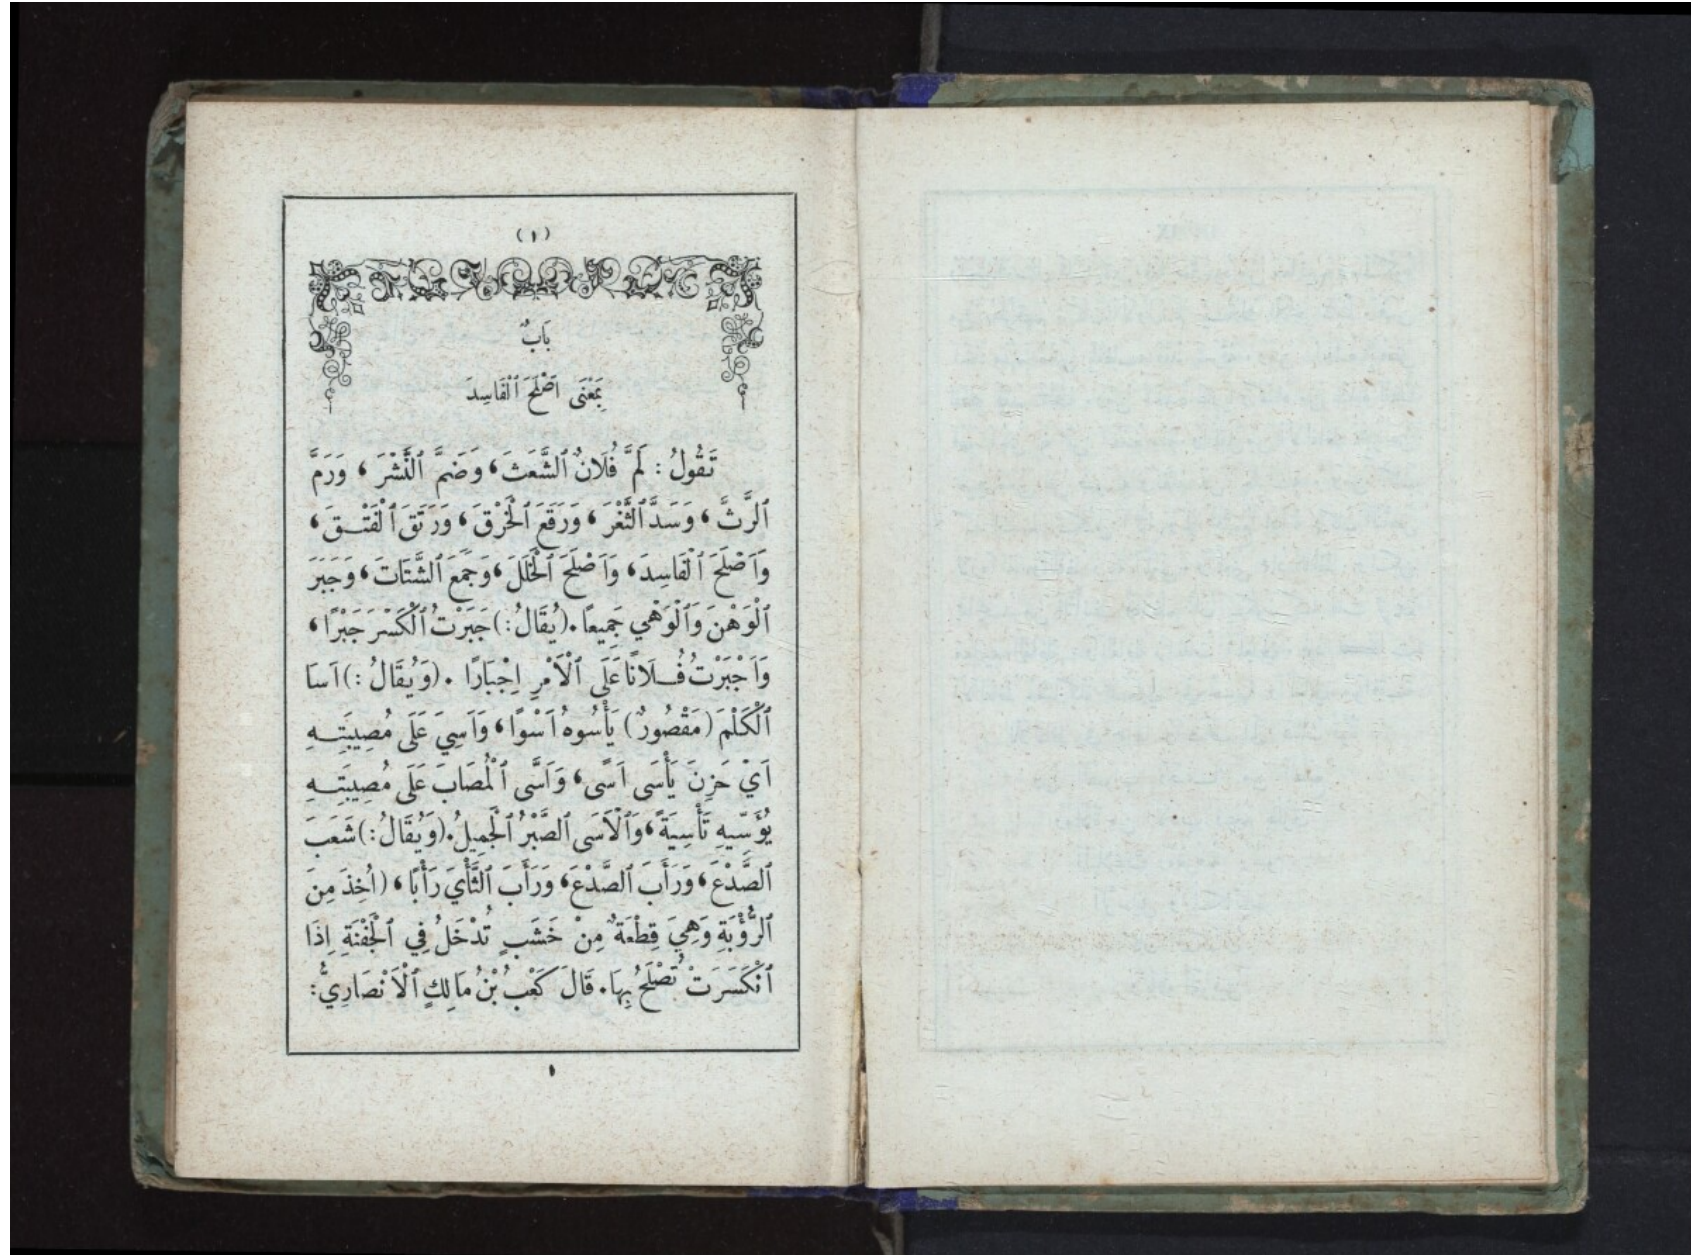 (١)
بَابٌ
بِمَعْنَى اَصْلَحَ ٱلْفَاسِدَ
تَقُولُ : لَمَّ فُلَانٌ ٱلشَّعَثَ، وَضَمَّ ٱلنَّشَرَ، وَرَمَّ
ٱلرَّثَّ، وَسَدَّ ٱلثَّغْرَ، وَرَقَعَ ٱلْخَرْقَ، وَرَتَقَ ٱلْفَتْقَ،
وَاَصْلَحَ ٱلْفَاسِدَ، وَاَصْلَحَ ٱلْخَلَلَ، وَجَمَعَ ٱلشَّتَاتَ، وَجَبَرَ
ٱلْوَهْنَ وَٱلْوَهْيَ جَمِيعًا. (يُقَالُ:) جَبَرْتُ ٱلْكَسْرَ جَبْرًا،
وَاَجْبَرْتُ فُلَانًا عَلَى ٱلْاَمْرِ اِجْبَارًا . (وَيُقَالُ :) اَسَا
ٱلْكَلْمَ (مَقْصُورٌ) يَأْسُوهُ اَسْوًا، وَاَسِيَ عَلَى مُصِيبَتِهِ
اَيْ حَزِنَ يَأْسَى اَسًى، وَاَسَّى ٱلْمُصَابَ عَلَى مُصِيبَتِهِ
يُؤَسِّيهِ تَأْسِيَةً، وَٱلْاَسَى ٱلصَّبْرُ ٱلْجَمِيلُ. (وَيُقَالُ:) شَعَبَ
ٱلصَّدْعَ، وَرَأَبَ ٱلصَّدْعَ، وَرَأَبَ ٱلثَّأْيَ رَأْبًا، (اُخِذَ مِنَ
ٱلرُّؤْبَةِ وَهِيَ قِطْعَةٌ مِنْ خَشَبٍ تُدْخَلُ فِي ٱلْجَفْنَةِ اِذَا
ٱنْكَسَرَتْ تُصْلَحُ بِهَا. قَالَ كَعْبُ بْنُ مَالِكٍ ٱلْاَنْصَارِيُّ:
١